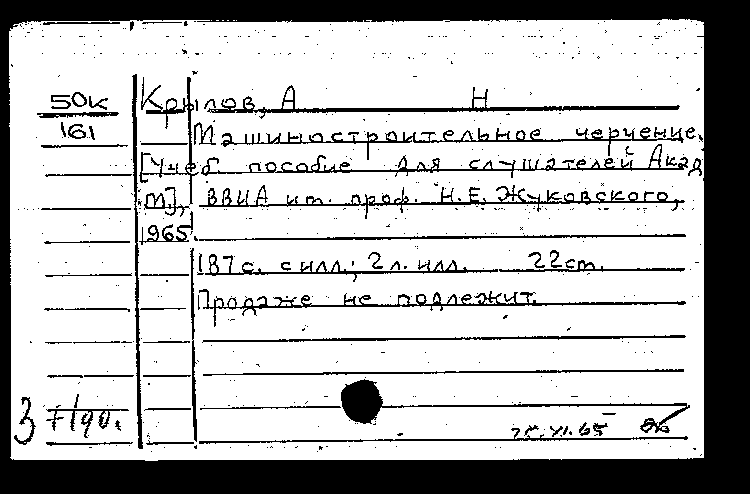 50к Крылов, А Н
161 Машиностроительное черчение.
[Учеб. пособие для слушателей Акад
М.], ВВИА им. проф. Н.Е. Жуковского,
1965.
187 с. с илл.; 2 л. илл. 22 cm.
Продаже не подлежит.
3
XI.65